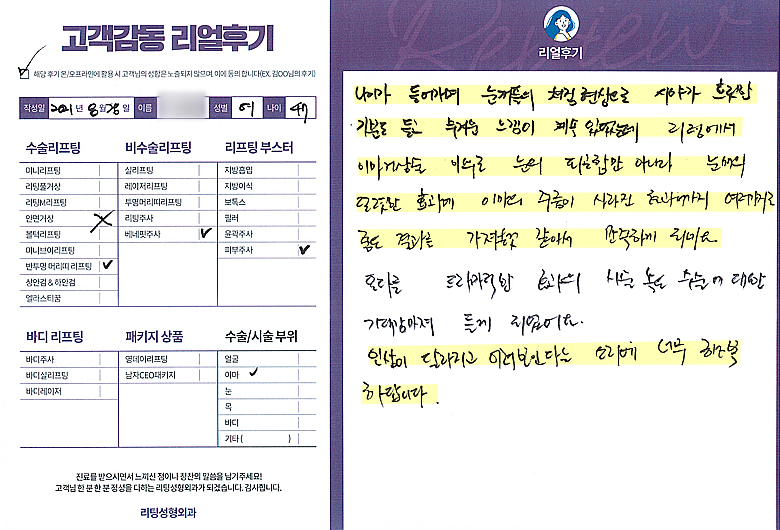 고객감동 리얼후기
해당 후기 온/오프라인에 활용 시 고객님의 성함은 노출되지 않으며, 이에 동의 합니다(EX. 김OO님의 후기)
작성일 2021년 8월 28일 이름 성별 여 나이 47
수술리프팅
미니리프팅
리팅풀거상
리팅M리프팅
안면거상
볼턱리프팅
미니브이리프팅
반투명 머리띠 리프팅
상안검 & 하안검
엘라스티꿈
비수술리프팅
실리프팅
레이저리프팅
투명머리띠리프팅
리팅주사
베네핏주사
리프팅 부스터
지방흡입
지방이식
보톡스
필러
윤곽주사
피부주사
바디 리프팅
바디주사
바디실리프팅
바디레이저
패키지 상품
영데이리프팅
남자CEO패키지
수술/시술 부위
얼굴
이마
눈
목
바디
기타 ( )
진료를 받으시면서 느끼신 점이나 칭찬의 말씀을 남기주세요!
고객님 한 분 한 분 정성을 다하는 리팅성형외과가 되겠습니다. 감사합니다.
리팅성형외과
Review
리얼후기
나이가 들어가며 눈꺼풀의 처짐 현상으로 시야가 흐릿한
기분도 들고 무거운 느낌이 계속 있었는데 리팅에서
이마거상술 이후로 눈의 또렷함만 아니라 눈매의
또렷한 효과에 이마의 주름이 사라진 효과까지 여러가지로
좋은 결과를 가져온것 같아서 만족하게 되네요.
또다른 드라마틱한 효과의 시술 혹은 수술에 대한
기대감마저 들게 되었어요.
인상이 달라지고 어려보인다는 소리에 너무 행복
하답니다.